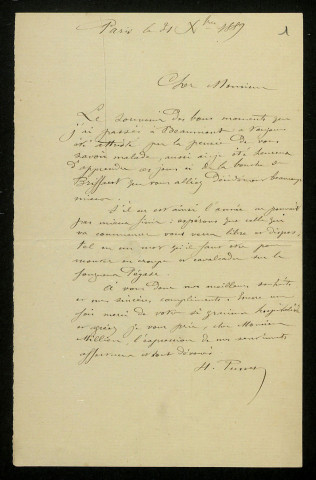 Paris le 31 Xbre 1889
1
Cher Monsieur
Le souvenir des bons moments que
j'ai passés à Beaumont a toujours
été attristé par la pensée de vous
savoir malade, aussi ai-je été heureux
d'apprendre ces jours ci de la bouche de
que vous alliez beaucoup
mieux.
S'il en est ainsi l'année ne pouvait
pas mieux finir : espérons que celle qui
va commencer vous verra libre et dispos,
tel en un mot qu'il faut être pour
monter en croupe et cavalcader sur le
fougueux Pégase.
A vous donc mes meilleurs souhaits
et mes sincères compliments. Encore une
fois merci de votre si gracieuse hospitalité
et agréez je vous prie, cher Monsieur
Millien, l'expression de mes sentiments
affectueux et tout dévoués
H.